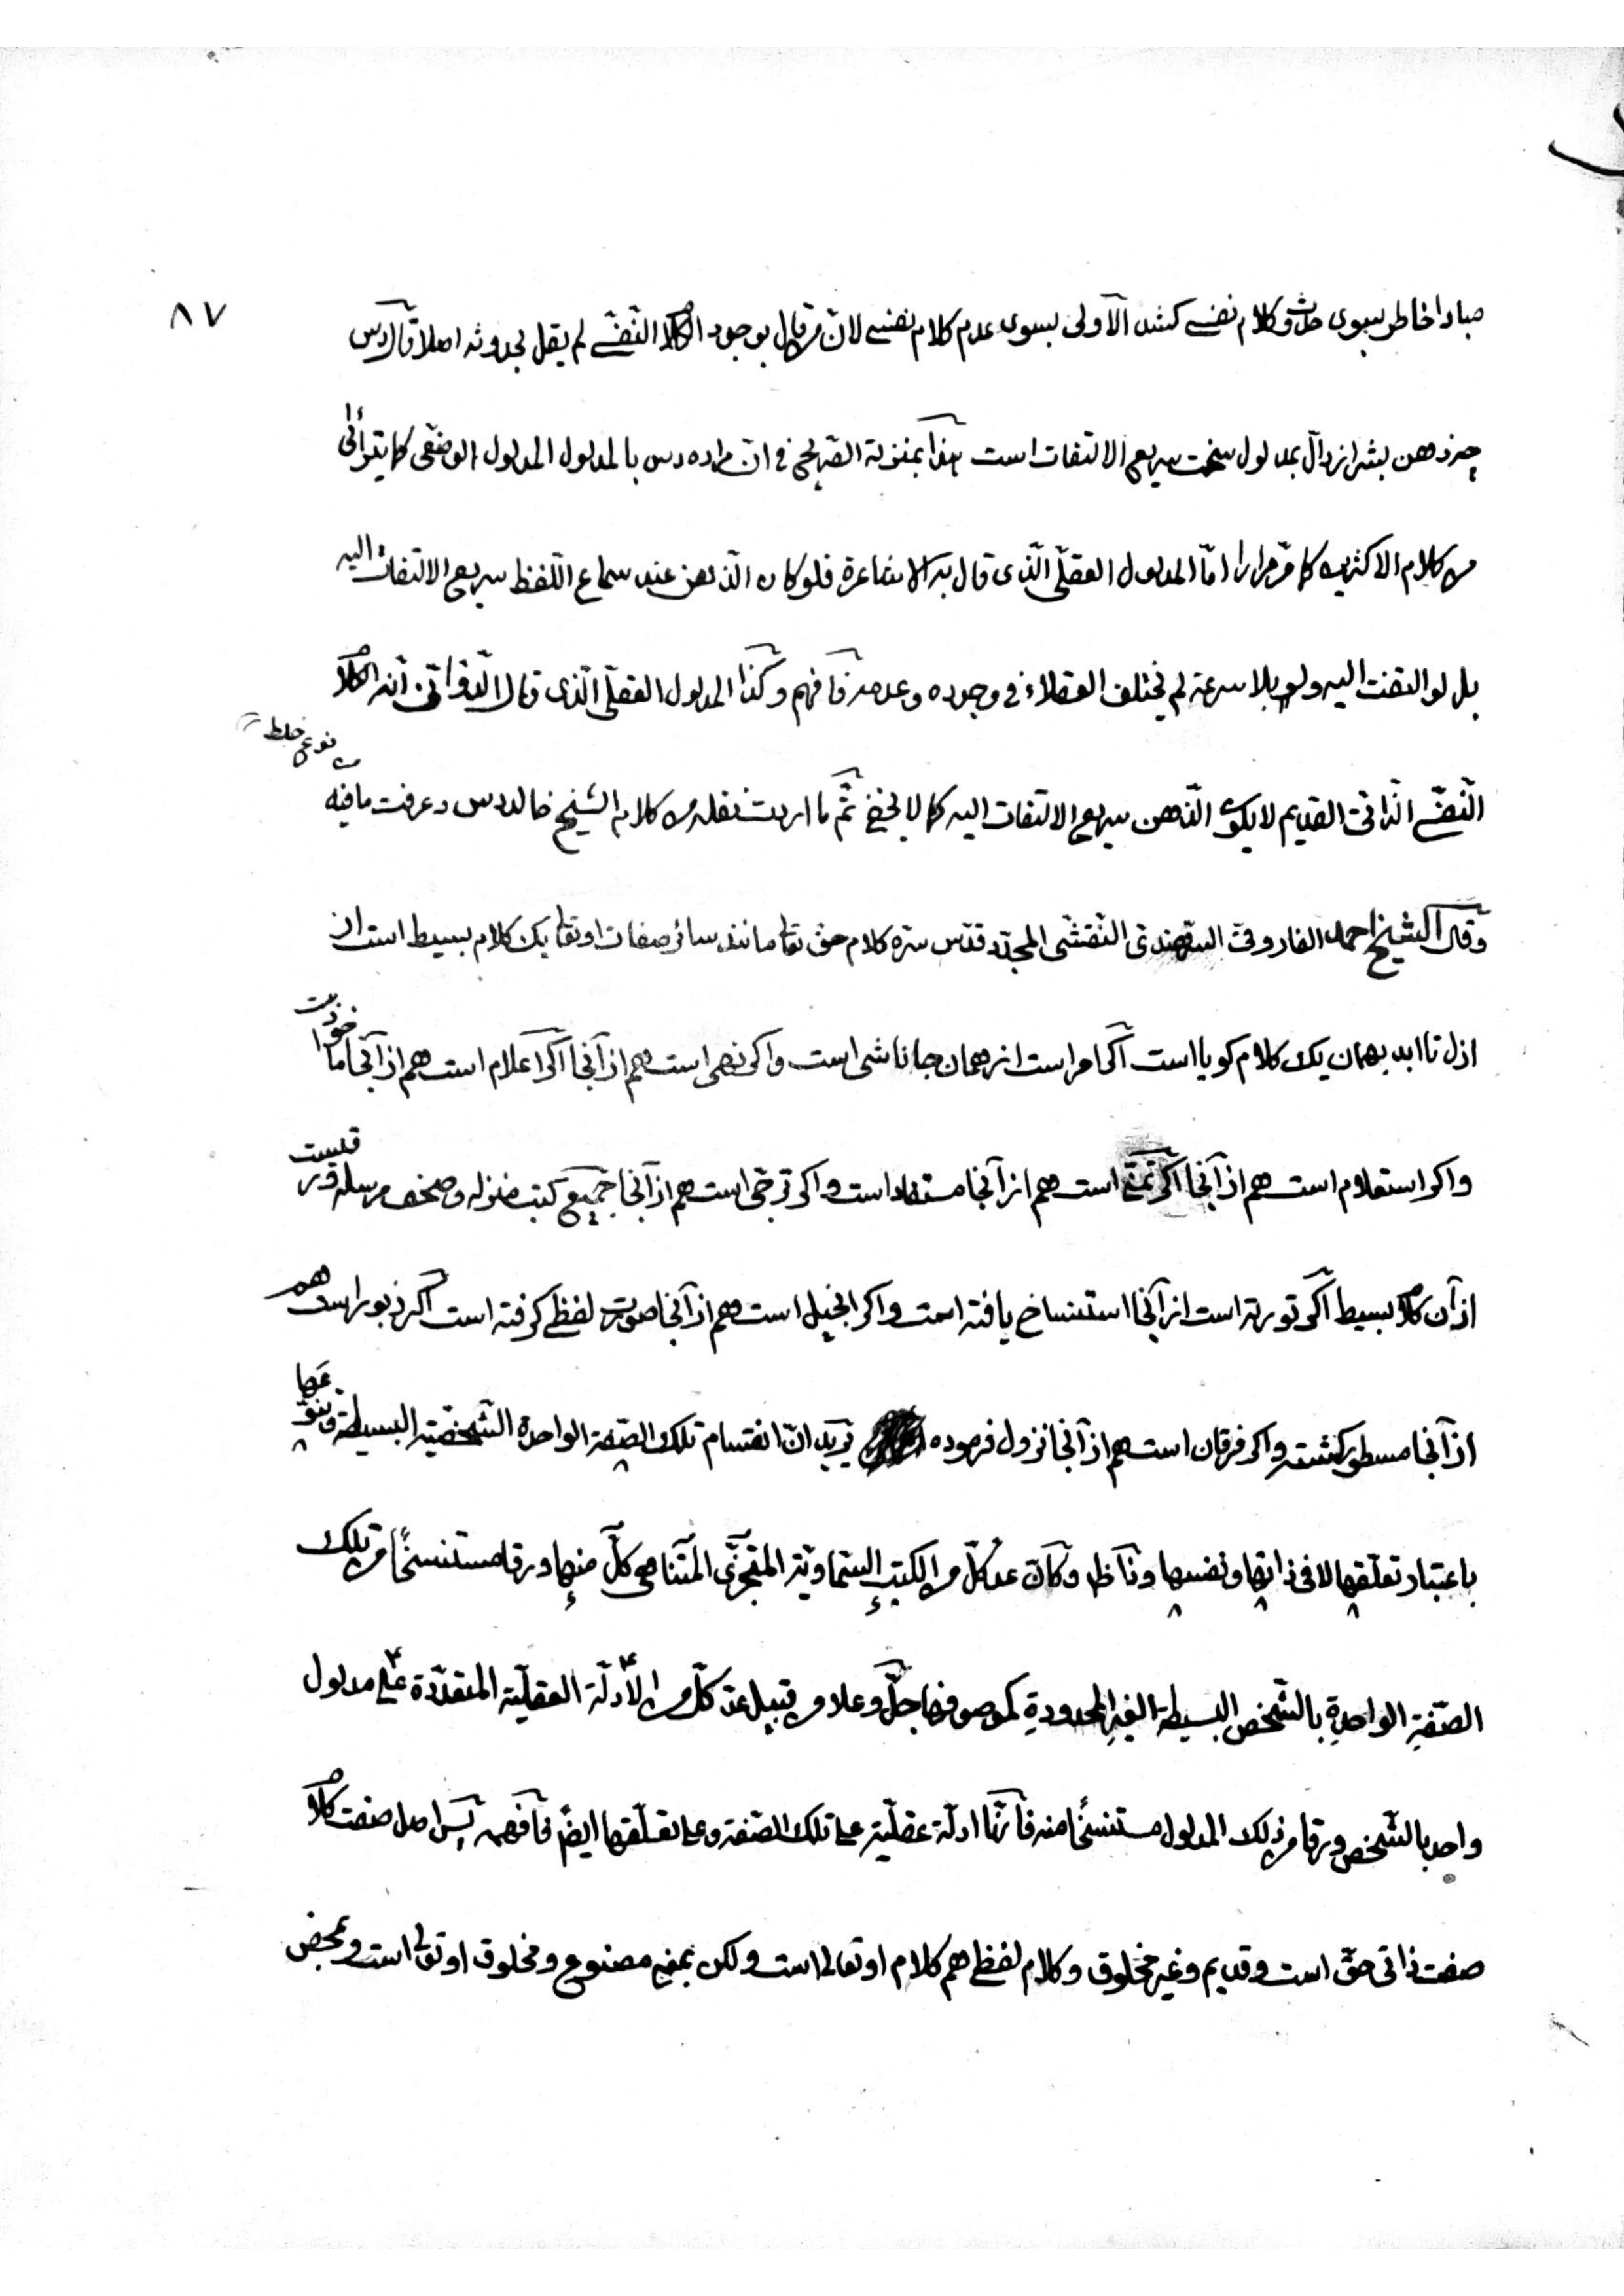 ٨٧
مبادا خاطر بسوی حدوث کلام نفسی کشد الاولی بسوی عدم کلام نفسی لانّ من قال بوجود الکلام النّفسّی لم یقل بحدوثه اصلا قال قدس
چه ذهن بشر از دالّ بمدلول سخت سریع الالتفات است هذا بمنزلة الصّریح فی انّ مراده قدس بالمدلول المدلول الوضعّی کما یترآئی
من کلام الاکثرین کما مرّ مرارا امّا المدلول العقلّی الّذی قال به الاشاعرة فلو کان الذّهن عند سماع اللّفظ سریع الالتفات الیه
بل لو التفت الیه ولو بلا سرعة لم یختلف العقلاء فی وجوده وعدمه فافهم وکذا المدلول العقلّی الّذی قال الدّوانّی انّه الکلام
النّفسّی الذاتّی القدیم لا یکون الذّهن سریع الالتفات الیه کما لا یخفی ثمّ ما اردت نقله من کلام الشیخ خالد قدس وعرفت ما فیه
من نوع خلط
وقال الشیخ احمد الفاروقّی السّرهندی النّقشّی المجدّد قدّس سرّه کلام حق تعا مانند سائر صفات او تعا یک کلام بسیط است از
ازل تا ابد بهمان یک کلام کویا است اکر امر است از همان جا ناشی است واکر نهی است هم از آنجا اکر اعلام است هم از آنجا ماخوذ است
واکر استعلام است هم از آنجا اکر تمنّی است هم از آنجا مستفاد است واکر ترجّی است هم از آنجا جمیع کتب منزله وصحف مرسله ورقیست
از آن کلام بسیط اکر توریة است از آنجا استنساخ یافته است واکر انجیل است هم از آنجا صورت لفظی کرفته است اکر زبور است هم
از آنجا مسطور کشته واکر فرقان است هم از آنجا نزول فرموده یرید انّ انقسام تلک الصّفة الواحدة الشّخصّیة البسیطة وتنوّعها
باعتبار تعلّقها لا فی ذاتها ونفسها وناظر وکانّ عدّ کلّ من الکتب السّماویّة المتجزّی المتناهی کلّ منها ورقا مستنسخًا من تلک
الصّفة الواحدة بالشّخص البسیطة الغیر المحدودة کموصوفها جلّ وعلا من قبیل عدّ کلّ من الأدلّة العقلیّة المتعدّدة علی مدلول
واحد بالشّخص ورقا من ذلک المدلول مستنسخًا منه فانّها ادلّة عقلیّة علی تلک الصّفة وعلی تعلّقها ایضًا فافهم پس اصل صفت کلام
صفت ذاتی حق است وقدیم وغیر مخلوق وکلام لفظی هم کلام او تعالی است ولکن بمعنی مصنوع ومخلوق او تعالی است وبمحض